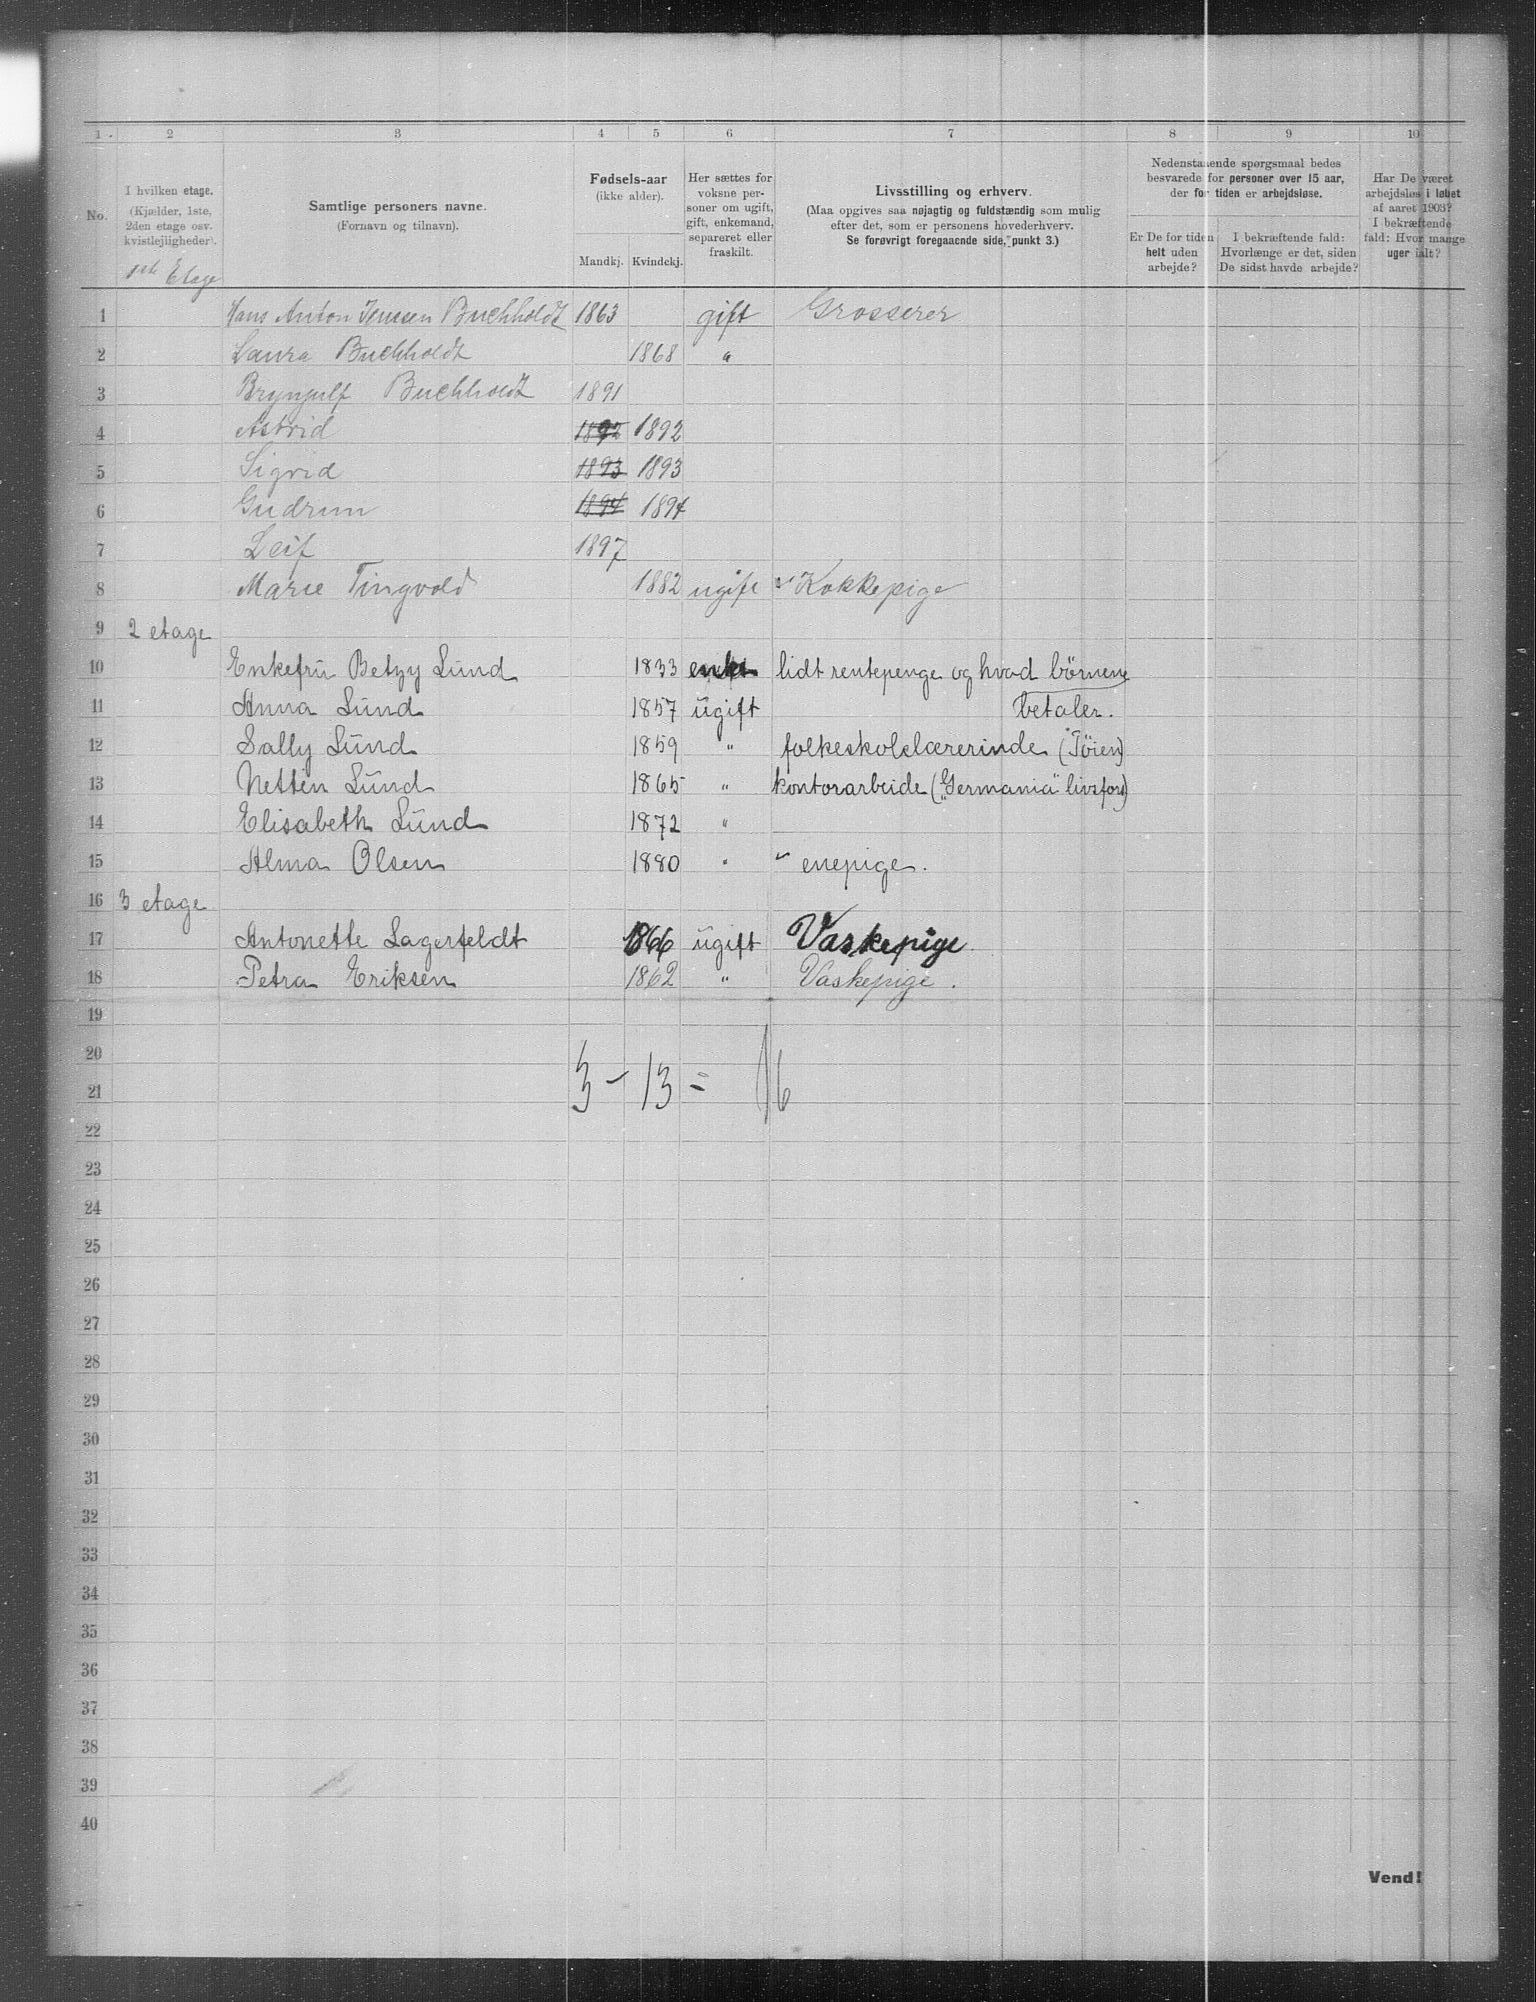 1 2 3 4 5 6 7 8 9 10
No.
I hvilken etage.
(Kjælder, 1ste,
2den etage osv.
kvistlejligheder).
1ste Etage
Samtlige personers navne.
(Fornavn og tilnavn).
Fødsels-aar
(ikke alder).
Mandkj. Kvindekj.
Her sættes for
voksne per-
soner om ugift,
gift, enkemand,
separeret eller
fraskilt.
Livsstilling og erhverv.
(Maa opgives saa nøjagtig og fuldstændig som mulig
efter det, som er personens hovederhverv.
Se forøvrigt foregaaende side, punkt 3.)
Nedenstaaende spørgsmaal bedes
besvarede for personer over 15 aar,
der for tiden er arbejdsløse.
Er De for tiden
helt uden
arbejde?
I bekræftende fald:
Hvorlænge er det, siden
De sidst havde arbejde?
Har De været
arbejdsløs i løbet
af aaret 1903?
I bekræftende
fald: Hvor mange
uger ialt?
1 Hans Anton Jenssen Buchholdt 1863 gift Grosserer
2 Laura Buchholdt 1868 "
3 Brynjulf Buchholdt 1891
4 Astrid 1892 1892
5 Sigrid 1893 1893
6 Gudrun 1894 1894
7 Leif 1897
8 Marie Tingvold 1882 ugift Kokkepige
9 2 etage
10 Enkefru Betzy Lund 1833 enke lidt rentepenge og hvad børnene
11 Anna Lund 1857 ugift betaler.
12 Sally Lund 1859 " folkeskolelærerinde (Tøien)
13 Netten Lund 1865 " kontorarbeide ("Germania" livsfors)
14 Elisabeth Lund 1872 "
15 Alma Olsen 1880 " enepige.
16 3 etage
17 Antonette Lagerfeldt 1866 ugift Vaskepige
18 Petra Eriksen 1862 " Vaskepige.
19
20
3 - 13 = 16
21
22
23
24
25
26
27
28
29
30
31
32
33
34
35
36
37
38
39
40
Vend!